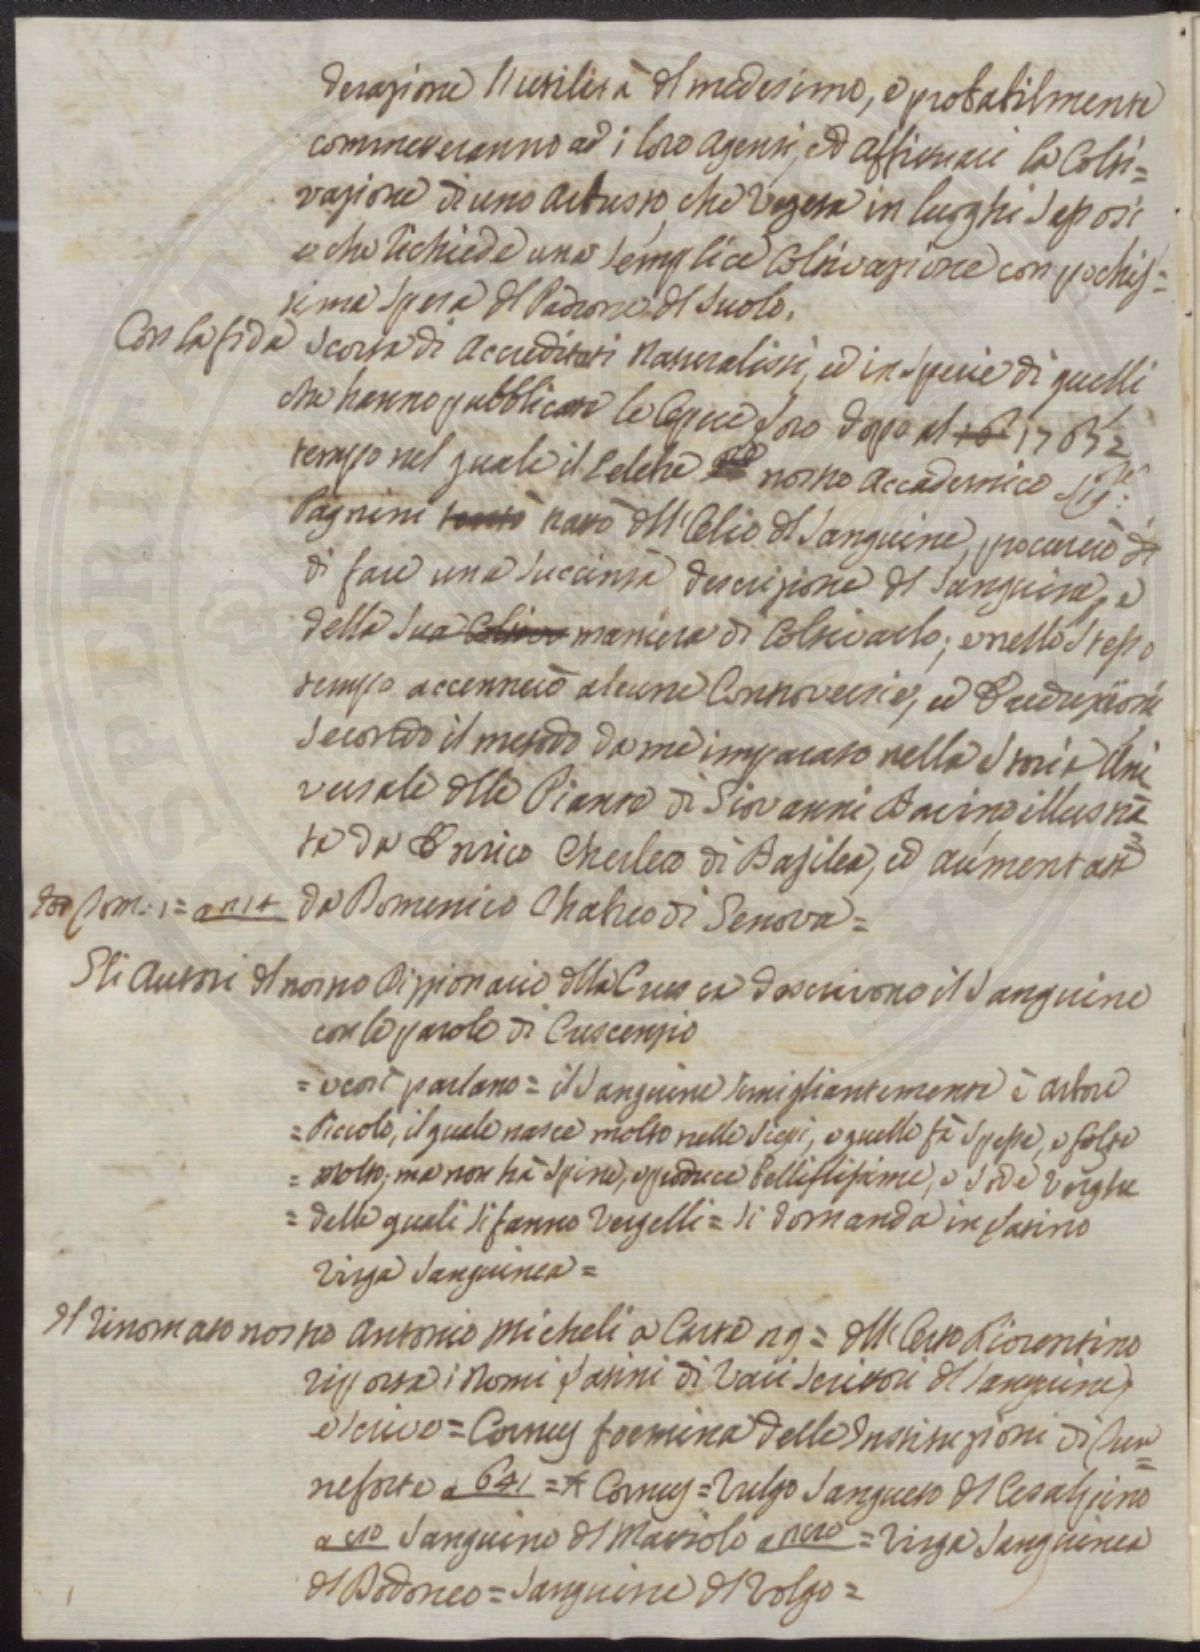 derazione l'utilità del medesimo, e probabilmente
commetteranno ad i loro Agenti, ed Affittuari la Colti=
vazione di uno Arbusto, che Vegeta in luoghi Saposi
e che richiede una Semplice Coltivazione con pochis=
sima Spesa del Padrone del Suolo.
Con la fida Scorta di Accreditati Naturalisti, ed in Specie di quelli
che hanno pubblicate le Opere Loro dopo al 1765
tempo nel quale il Celebre nostro Accademico Sig.re
Pagnini trattò dell'Olio del Sanguine, procurerò di
di fare una Succinta descrizione del Sanguine, e
della Sua maniera di Coltivarlo; e nello Stesso
tempo accennerò alcune Controversie, ed
Secondo il metodo da me imparato nella Storia Uni
versale delle Piante di Giovanni Bavino illustra
ta da Enrico Cherlero di Basilea, ed aumentata
Tom. 1 = da Domenico Chabreo di Genova =
Gli Autori del nostro Dizzionario della Crusca descrivono il Sanguine
con le parole di Crescenzio
= e così parlano = il Sanguine Simigliantemente è arbore
= Piccolo, il quale nasce molto nelle Siepi, e quelle fà Spesse, e folte
= molto; ma non hà Spine, e produce bellissime, e Sode Verghe
= delle quali si fanno Vergelli = Si domanda in Latino
Virga Sanguinea =
Il Rinomato nostro Antonio Micheli a Carte 29 = dell'Orto Fiorentino
riporta i Nomi Latini di Varii Scrittori del Sanguine,
e Scrive = Cornus foemina delle Instituzioni di Tur=
neforte a 641 = * Cornus = Vulgo Sangueto del Cesalpino
Sanguino del Mattiolo = Virga Sanguinea
del Dodoneo = Sanguine del Volgo =